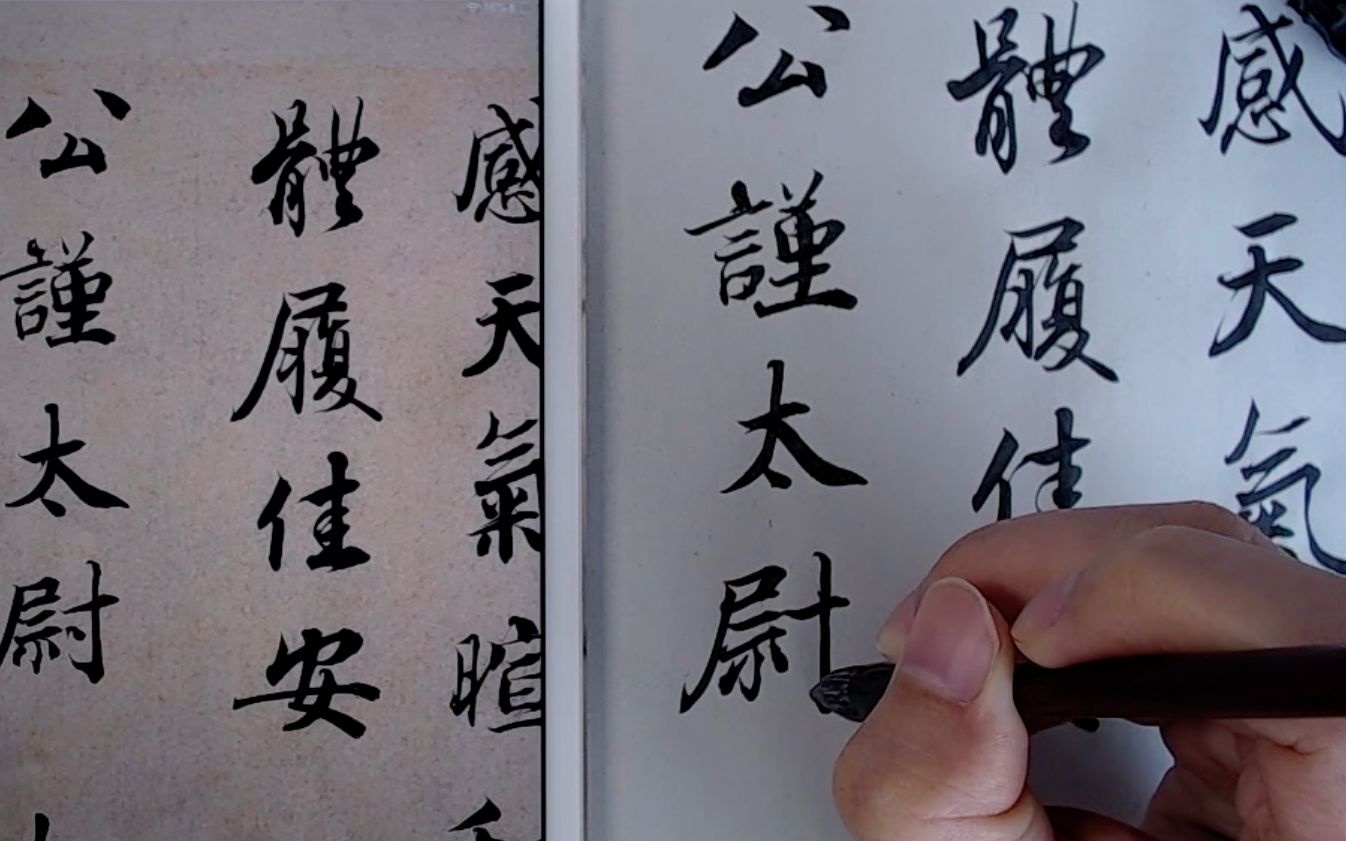 感天氣暄
體履佳安
公謹太尉
感天氣
體履佳
公謹太尉